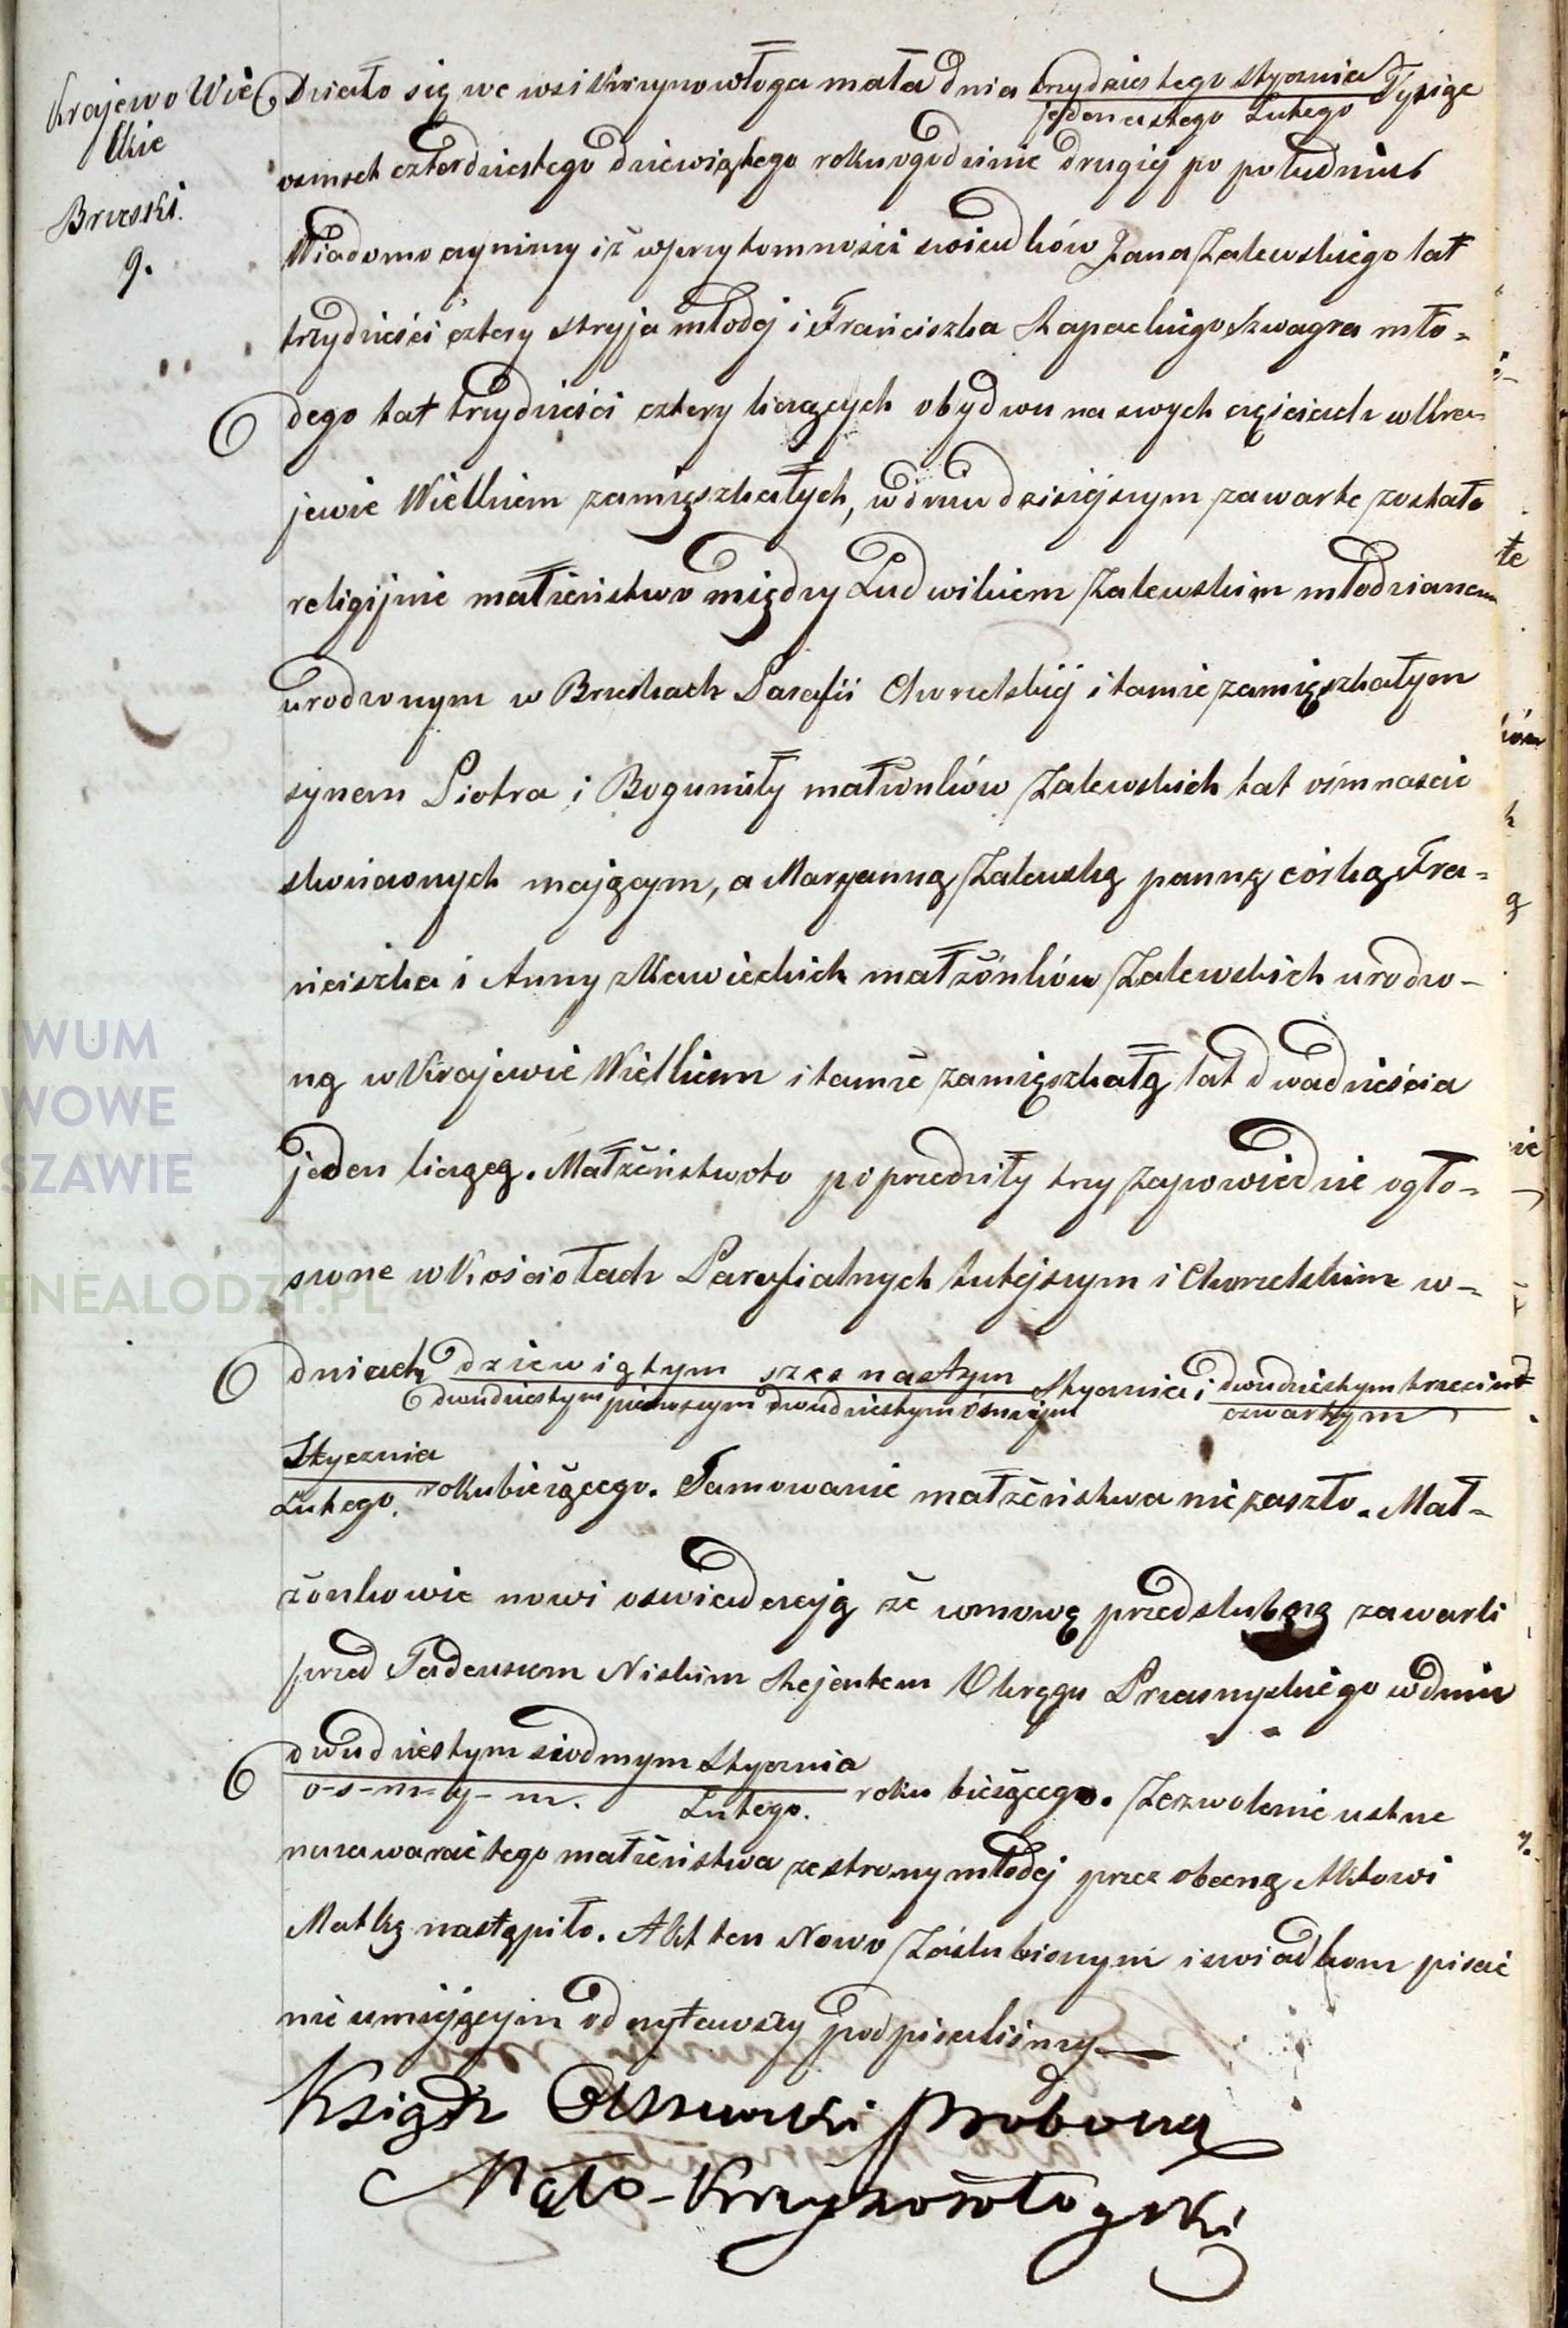 Krajewo Wiel
kie
Brzeski.
9.
Działo się we wsi Krzynowłoga mała dnia trzydziestego Stycznia Tysiąc
jedenastego Lutego
osmset czterdziestego dziewiątego roku o godzinie drugiej po południu
Wiadomo czynimy iż w przytomności świadków Jana Zalewskiego lat
trzydzieści cztery stryja młodej i Franciszka Rapackiego Szwagra mło-
dego lat trzydzieści cztery liczących obydwu na swych częściach w Kra-
jewie Wielkiem zamięszkałych, w dniu dzisiejszym zawarte zostało
religijnie małżeństwo między Ludwikiem Zalewskim młodzianem
urodzonym w Brzeskach Parafii Chorzelskiej i tamże zamięszkałym
synem Piotra i Bogumiły małżonków Zalewskich lat ośmnaście
skończonych mającym, a Maryanną Zalewską panną córką Fra-
nciszka i Anny z Kawieckich małżónków Zalewskich urodzo-
ną w Krajewie Wielkiem i tamże zamięszkałą lat dwadzieścia
jeden liczącą. Małżeństwo to poprzedziły trzy zapowiedzie ogło-
szone w Kościołach Parafialnych tutejszym i Chorzelskim w-
dniach dziewiątym szesnastym Stycznia i dwudziestym trzecim
dwudziestym pierwszym dwudziestym ósmym czwartym
Stycznia
Lutego. roku bieżącego. Tamowanie małżeństwa nie zaszło. Mał-
żonkowie nowi oswiadczają że umowę przedslubną zawarli
przed Tadeuszem Niskim Rejentem Okręgu Przasnyskiego w dniu
dwudziestym siodmym Stycznia
o-s-m-y-m. Lutego. roku bieżącego. Zezwolenie ustne
na zawarcie tego małżeństwa ze strony młodej przez obecną Aktowi
Matkę nastąpiło. Akt ten Nowo Zaślubionym i swiadkom pisać
nie umiejącym odczytawszy podpisaliśmy
Ksiądz Proboszcz
Mało-Krzynowłogski